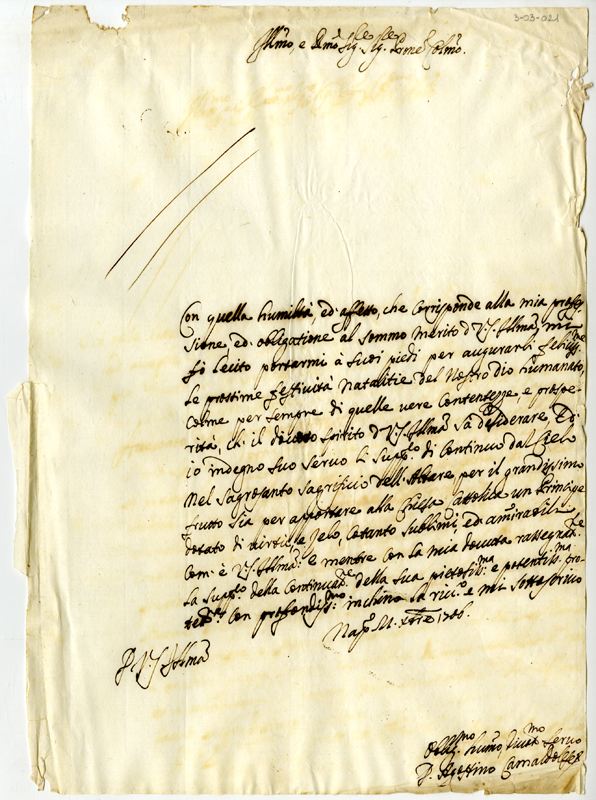 3-03-021
Ill.mo, e R.mo Sig.re Sig.re P.rone Col.mo
Con quella humiltà ed affetto, che corrisponde alla mia profes-
sione ed obligatione al sommo merito di V.S. Ill.ma mi
fò lecito portarmi à suoi piedi per augurarli felicis.me
le prossime festività natalitie del Nostro Dio humanato,
colme per sempre di quelle vere contentezze, e prospe-
rità, ch'il spirito di V.S. Ill.ma sà desiderare, Ed
io indegno suo servo li di continuo dal Cielo
nel sagrosanto sagrificio dell'Altare, per il grandissimo
frutto sia per apportare alla Chiesa Cattolica un Principe
dotato di virtù, e zelo, cotanto sublimi, ed amirabili
com'è V.S. Ill.ma: e mentre con la mia dovuta rassegnat.ne
la della continuat.ne della sua pietosis.ma e potentis.ma pro-
con profondis.mo inchino la riv. e mi sottoscrivo
Nap. 1706.
D V.S. Ill.ma
Oblig.mo Humil.mo Divot.mo Servo
D. Agostino Camaldolese